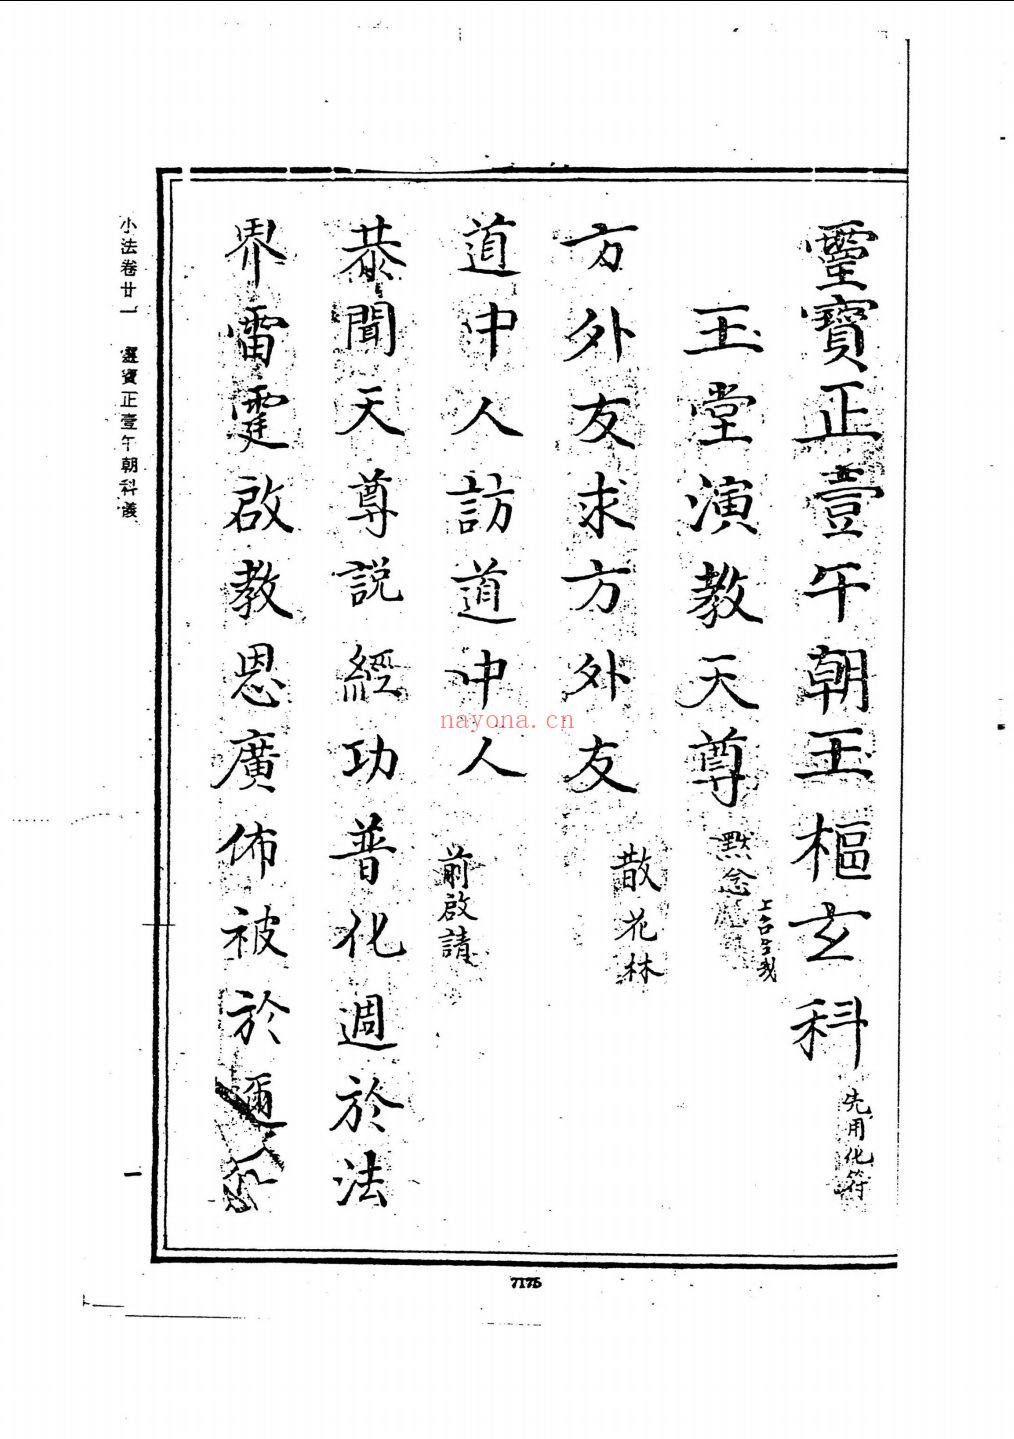 靈寶正壹午朝玉樞玄科 先用化符
玉堂演教天尊 默念
方外友求方外友 散花林
道中人訪道中人 前啟請
恭聞天尊説經功普化週於法
界雷霆啟教恩廣佈被於邇
小法卷廿一 靈寶正壹午朝科儀
一
7175
nayona.cn